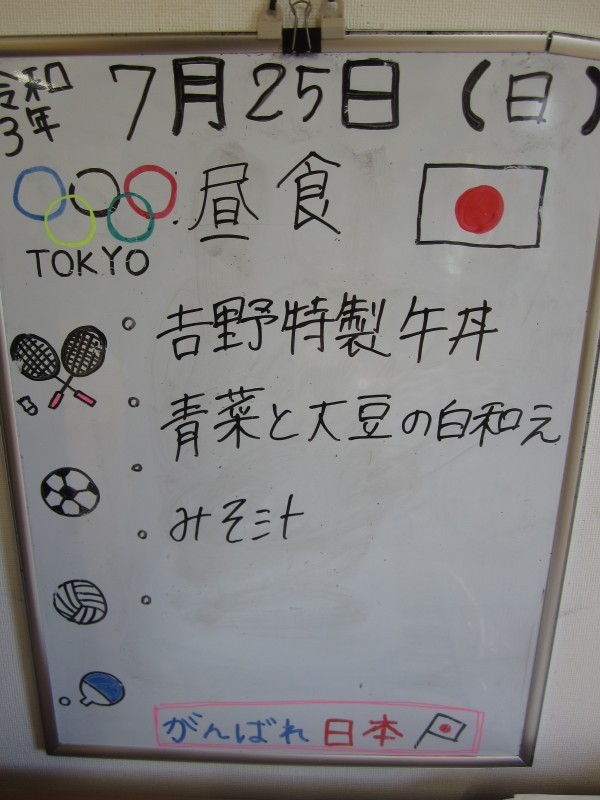 令和3年 7月25日(日)
昼食
TOKYO
吉野特製牛丼
青菜と大豆の白和え
みそ汁
がんばれ日本